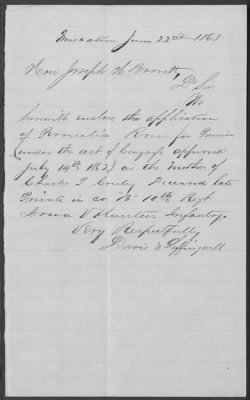 Muscatine June 22nd 1863
Hon Joseph H Barrett
Dr Sir
We
herewith enclose the application
of Permelia Row for Pension
(under the act of Congress approved
July 14th 1862) as the Mother of
Charles T Deceased late
Private in co 10th Regt
Iowa Volunteer Infantry.
Very Respectfully